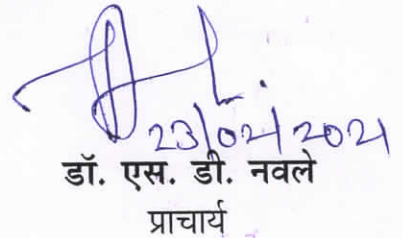 23/02/2021
डॉ. एस. डी. नवले
प्राचार्य